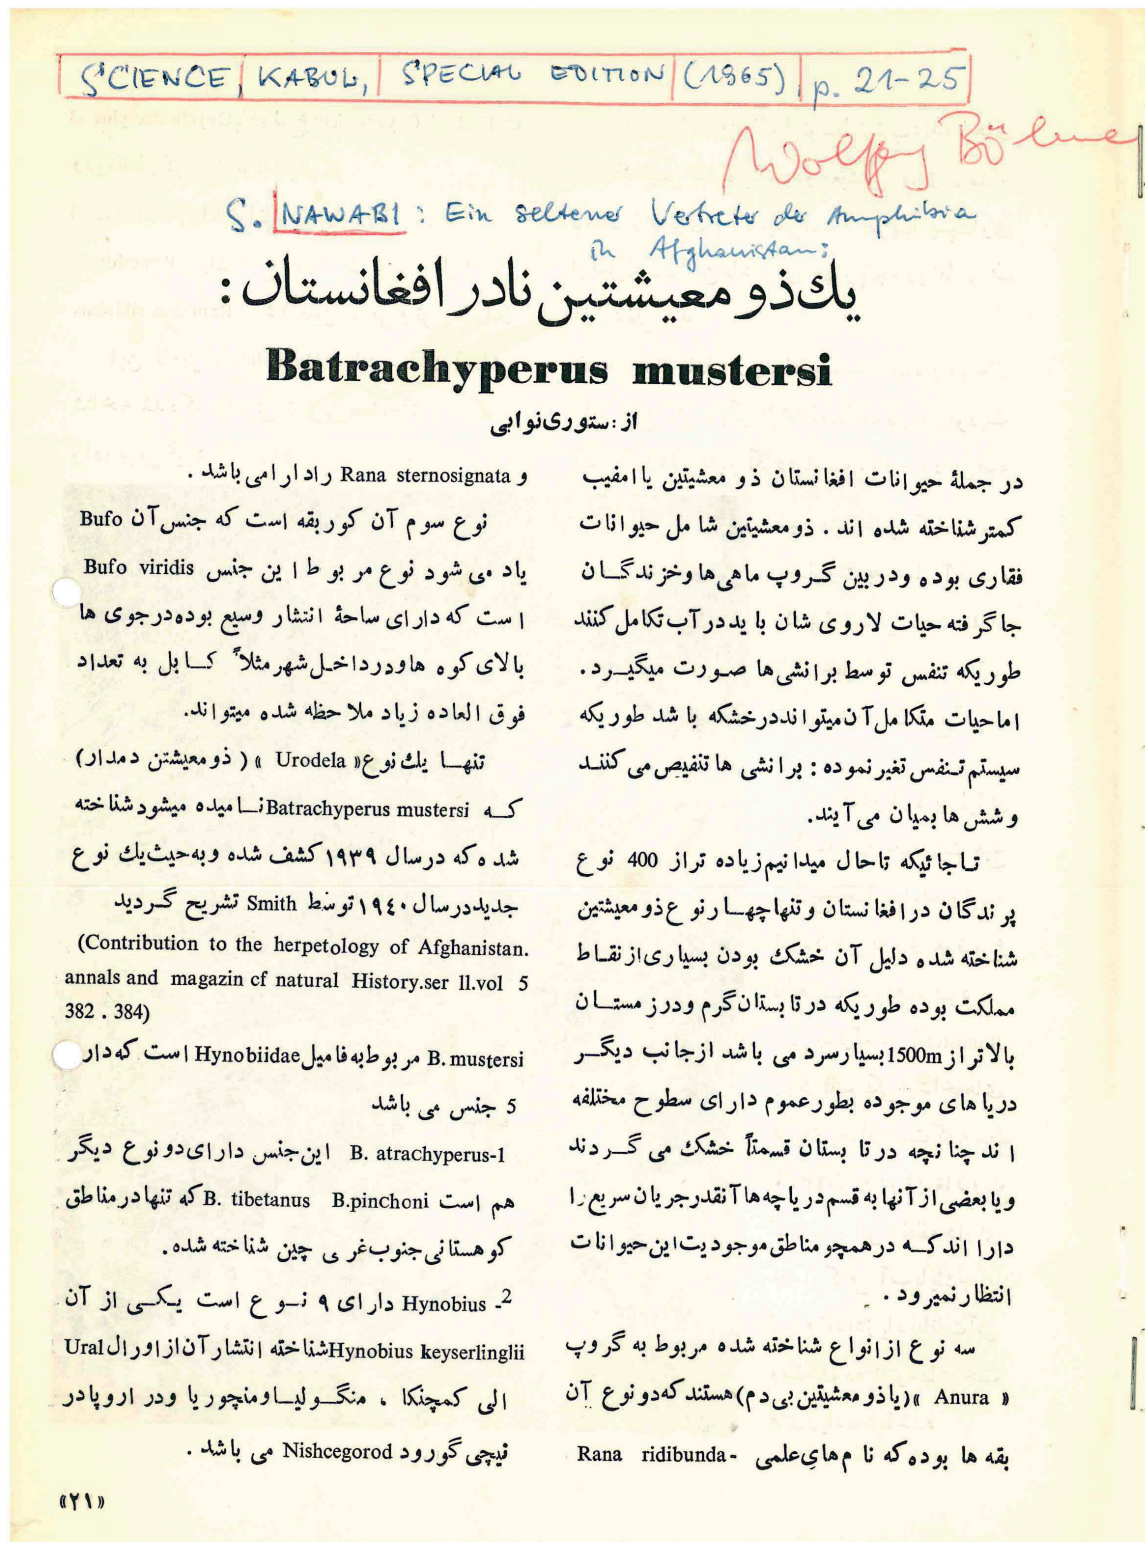 SCIENCE, KABUL, SPECIAL EDITION (1965) p. 21-25
Wolfgang Böhme
S. NAWABI: Ein seltener Vertreter der Amphibia
in Afghanistan:
يك ذو معيشتين نادر افغانستان :
Batrachyperus mustersi
از : ستوری نوابی
در جملهٔ حیوانات افغانستان ذو معشیتین یا امفیب
کمتر شناخته شده اند . ذو معشیتین شامل حیوانات
فقاری بوده ودر بین گروپ ماهی ها وخزندگان
جا گرفته حیات لاروی شان باید در آب تکامل کنند
طوریکه تنفس توسط برانشی ها صورت میگیرد.
اما حیات متکامل آن میتواند در خشکه باشد طوریکه
سیستم تنفس تغیر نموده : برانشی ها تنفیص می کنند
وشش ها بمیان می آیند.
تا جائیکه تا حال میدانیم زیاده تر از 400 نوع
پرندگان در افغانستان و تنها چهار نوع ذو معیشتین
شناخته شده دلیل آن خشک بودن بسیاری از نقاط
مملکت بوده طوریکه در تابستان گرم ودر زمستان
بالاتر از 1500m بسیار سرد می باشد از جانب دیگر
دریا های موجوده بطور عموم دارای سطوح مختلفه
اند چنانچه در تا بستان قسمتاً خشک می گردند
ویا بعضی از آنها به قسم دریاچه ها آنقدر جریان سریع را
دارا اند که در همچو مناطق موجودیت این حیوانات
انتظار نمیرود .
سه نوع از انواع شناخته شده مربوط به گروپ
« Anura » (یا ذو معشیتین بی دم) هستند که دو نوع آن
بقه ها بوده که نام های علمی Rana ridibunda -
و Rana sternosignata را دارا می باشد .
نوع سوم آن کور بقه است که جنس آن Bufo
یاد می شود نوع مربوط این جنس Bufo viridis
است که دارای ساحهٔ انتشار وسیع بوده در جوی ها
بالای کوه ها ودر داخل شهر مثلاً کابل به تعداد
فوق العاده زیاد ملاحظه شده میتواند.
تنها یك نوع « Urodela » (ذو معیشتن دمدار)
که Batrachyperus mustersi نامیده میشود شناخته
شده که در سال ۱۹۳۹ کشف شده وبه حیث یك نوع
جدید در سال ۱۹٤۰ توسط Smith تشریح گردید
(Contribution to the herpetology of Afghanistan.
annals and magazin cf natural History.ser ll.vol 5
382 . 384)
B. mustersi مربوط به فامیل Hynobiidae است که دار
5 جنس می باشد
1-B. atrachyperus این جنس دارای دو نوع دیگر
هم است B. tibetanus B.pinchoni که تنها در مناطق
کوهستانی جنوب غربی چین شناخته شده.
2- Hynobius دارای ۹ نوع است یکی از آن
Hynobius keyserlinglii شناخته انتشار آن از اورال Ural
الی کمچتکا ، منگولیا ومنچوریا ودر اروپا در
نیچی گورود Nishcegorod می باشد .
«۲۱»